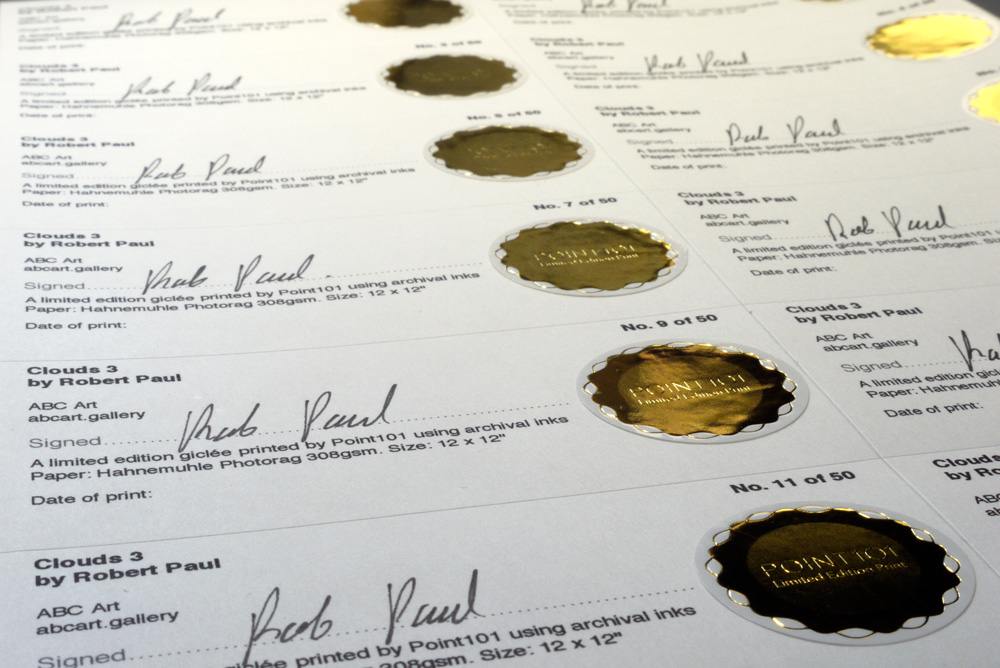 Signed
A limited edition giclée printed by Point101 using archival inks
Date of print:
No. 3 of 50
Clouds 3
by Robert Paul
ABC Art
abcart.gallery
Signed Rob Paul
A limited edition giclée printed by Point101 using archival inks
Paper: Hahnemuhle Photorag 308gsm. Size: 12 x 12"
Date of print:
No. 5 of 50
Clouds 3
by Robert Paul
ABC Art
abcart.gallery
Signed Rob Paul
A limited edition giclée printed by Point101 using archival inks
Paper: Hahnemuhle Photorag 308gsm. Size: 12 x 12"
Date of print:
No. 7 of 50
Clouds 3
by Robert Paul
ABC Art
abcart.gallery
Signed Rob Paul
A limited edition giclée printed by Point101 using archival inks
Paper: Hahnemuhle Photorag 308gsm. Size: 12 x 12"
Date of print:
POINT101
Limited Edition Print
No. 9 of 50
Clouds 3
by Robert Paul
ABC Art
abcart.gallery
Signed Rob Paul
A limited edition giclée printed by Point101 using archival inks
Paper: Hahnemuhle Photorag 308gsm. Size: 12 x 12"
Date of print:
POINT101
Limited Edition Print
No. 11 of 50
Clouds 3
by Robert Paul
ABC Art
abcart.gallery
Signed Rob Paul
giclée printed by Point101 using archival inks
308gsm. Size: 12 x 12"
POINT101
Limited Edition Print
Clouds 3
by Robert Paul
ABC Art
abcart.gallery
Signed Rob Paul
A limited edition giclée printed by Point101 using archival inks
Paper: Hahnemuhle Photorag 308gsm. Size: 12 x 12"
Date of print:
Clouds 3
by Robert Paul
ABC Art
abcart.gallery
Signed Rob Paul
A limited edition giclée printed by Point101 using archival
Paper: Hahnemuhle Photorag 308gsm. Size: 12 x 12"
Date of print:
Clouds 3
by Robert Paul
ABC Art
abcart.gallery
Signed
A limited edition
Paper: Hahnemuhle
Date of print:
Clouds